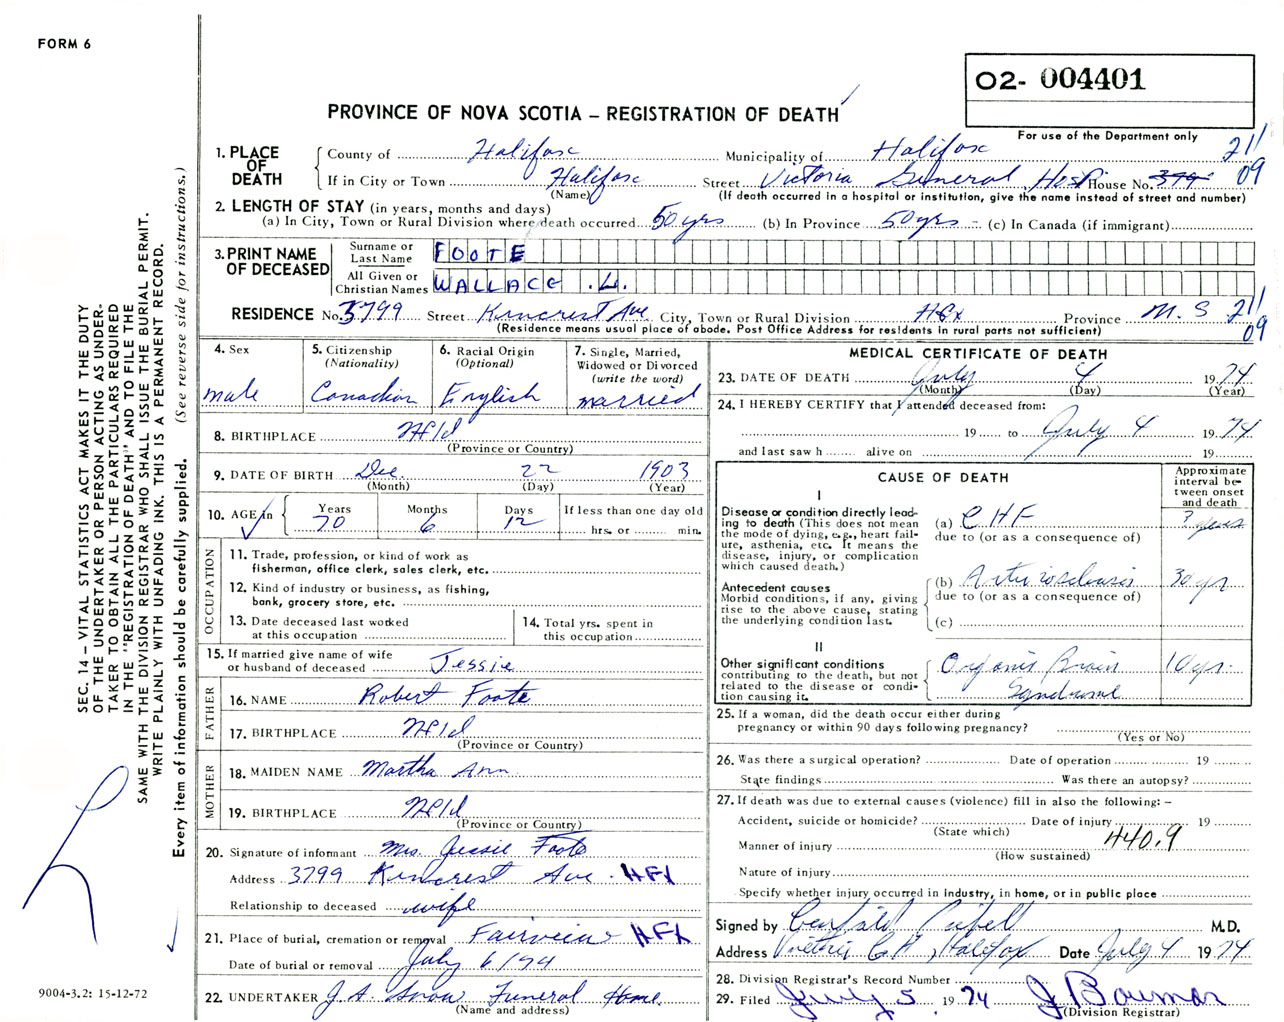 FORM 6
02- 004401
PROVINCE OF NOVA SCOTIA – REGISTRATION OF DEATH
For use of the Department only
1. PLACE OF DEATH
County of Halifax Municipality of Halifax 211
If in City or Town Halifax Street Victoria General Hosp House No. 3799 09
(Name) (If death occurred in a hospital or institution, give the name instead of street and number)
2. LENGTH OF STAY (in years, months and days)
(a) In City, Town or Rural Division where death occurred 50 yrs (b) In Province 50 yrs - (c) In Canada (if immigrant)
3. PRINT NAME OF DECEASED
Surname or Last Name FOOTE
All Given or Christian Names WALLACE .H.
RESIDENCE No. 3799 Street Kencrest Ave City, Town or Rural Division Hfx Province N.S 211
(Residence means usual place of abode. Post Office Address for residents in rural parts not sufficient) 09
4. Sex
male
5. Citizenship
(Nationality)
Canadian
6. Racial Origin
(Optional)
English
7. Single, Married,
Widowed or Divorced
(write the word)
married
8. BIRTHPLACE Nfld
(Province or Country)
9. DATE OF BIRTH Dec. 22 1903
(Month) (Day) (Year)
10. AGE in
Years Months Days If less than one day old
70 6 12 hrs. or min.
OCCUPATION
11. Trade, profession, or kind of work as
fisherman, office clerk, sales clerk, etc.
12. Kind of industry or business, as fishing,
bank, grocery store, etc.
13. Date deceased last worked
at this occupation
14. Total yrs. spent in
this occupation
15. If married give name of wife
or husband of deceased Jessie
FATHER
16. NAME Robert Foote
17. BIRTHPLACE Nfld
(Province or Country)
MOTHER
18. MAIDEN NAME Martha Ann
19. BIRTHPLACE Nfld
(Province or Country)
20. Signature of informant Mrs Jessie Foote
Address 3799 Kencrest Ave. HFX
Relationship to deceased wife
21. Place of burial, cremation or removal Fairview HFX
Date of burial or removal July 6/74
22. UNDERTAKER J.A. Snow Funeral Home
(Name and address)
MEDICAL CERTIFICATE OF DEATH
23. DATE OF DEATH July 4 1974
(Month) (Day) (Year)
24. I HEREBY CERTIFY that I attended deceased from:
19 to July 4 1974
and last saw h alive on 19
CAUSE OF DEATH
Approximate
interval be-
tween onset
and death
I
Disease or condition directly lead-
ing to death (This does not mean
the mode of dying, e.g., heart fail-
ure, asthenia, etc. It means the
disease, injury, or complication
which caused death.)
(a) CHF ? years
due to (or as a consequence of)
Antecedent causes
Morbid conditions, if any, giving
rise to the above cause, stating
the underlying condition last.
(b) Arteriosclerosis 30 yr
due to (or as a consequence of)
(c)
II
Other significant conditions
contributing to the death, but not
related to the disease or condi-
tion causing it.
Organic Brain 10 yrs.
Syndrome
25. If a woman, did the death occur either during
pregnancy or within 90 days following pregnancy?
(Yes or No)
26. Was there a surgical operation? Date of operation 19
State findings Was there an autopsy?
27. If death was due to external causes (violence) fill in also the following: –
Accident, suicide or homicide? Date of injury 19
(State which) 440.9
Manner of injury
(How sustained)
Nature of injury
Specify whether injury occurred in industry, in home, or in public place
Signed by M.D.
Address Victoria G.H., Halifax Date July 4 1974
28. Division Registrar's Record Number
29. Filed July 5 1974 J Bowman
(Division Registrar)
SEC. 14 – VITAL STATISTICS ACT MAKES IT THE DUTY
OF THE UNDERTAKER OR PERSON ACTING AS UNDER-
TAKER TO OBTAIN ALL THE PARTICULARS REQUIRED
IN THE "REGISTRATION OF DEATH" AND TO FILE THE
SAME WITH THE DIVISION REGISTRAR WHO SHALL ISSUE THE BURIAL PERMIT.
WRITE PLAINLY WITH UNFADING INK. THIS IS A PERMANENT RECORD.
Every item of information should be carefully supplied. (See reverse side for instructions.)
9004-3.2: 15-12-72